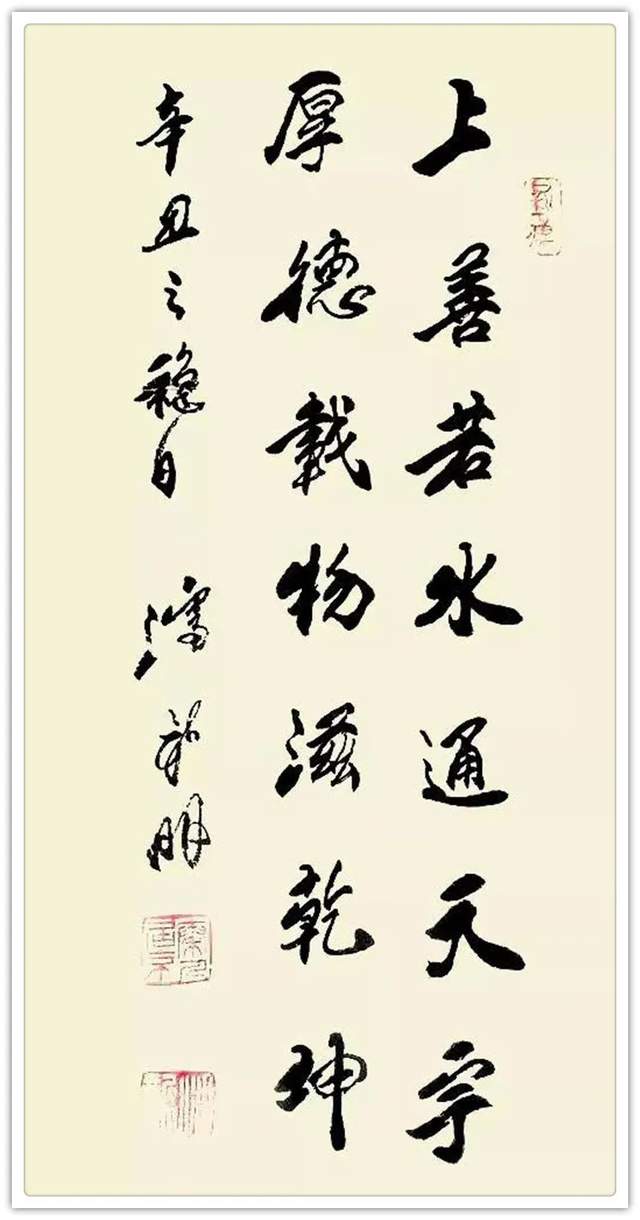 上善若水通天宇
厚德載物滋乾坤
辛丑之 日 明